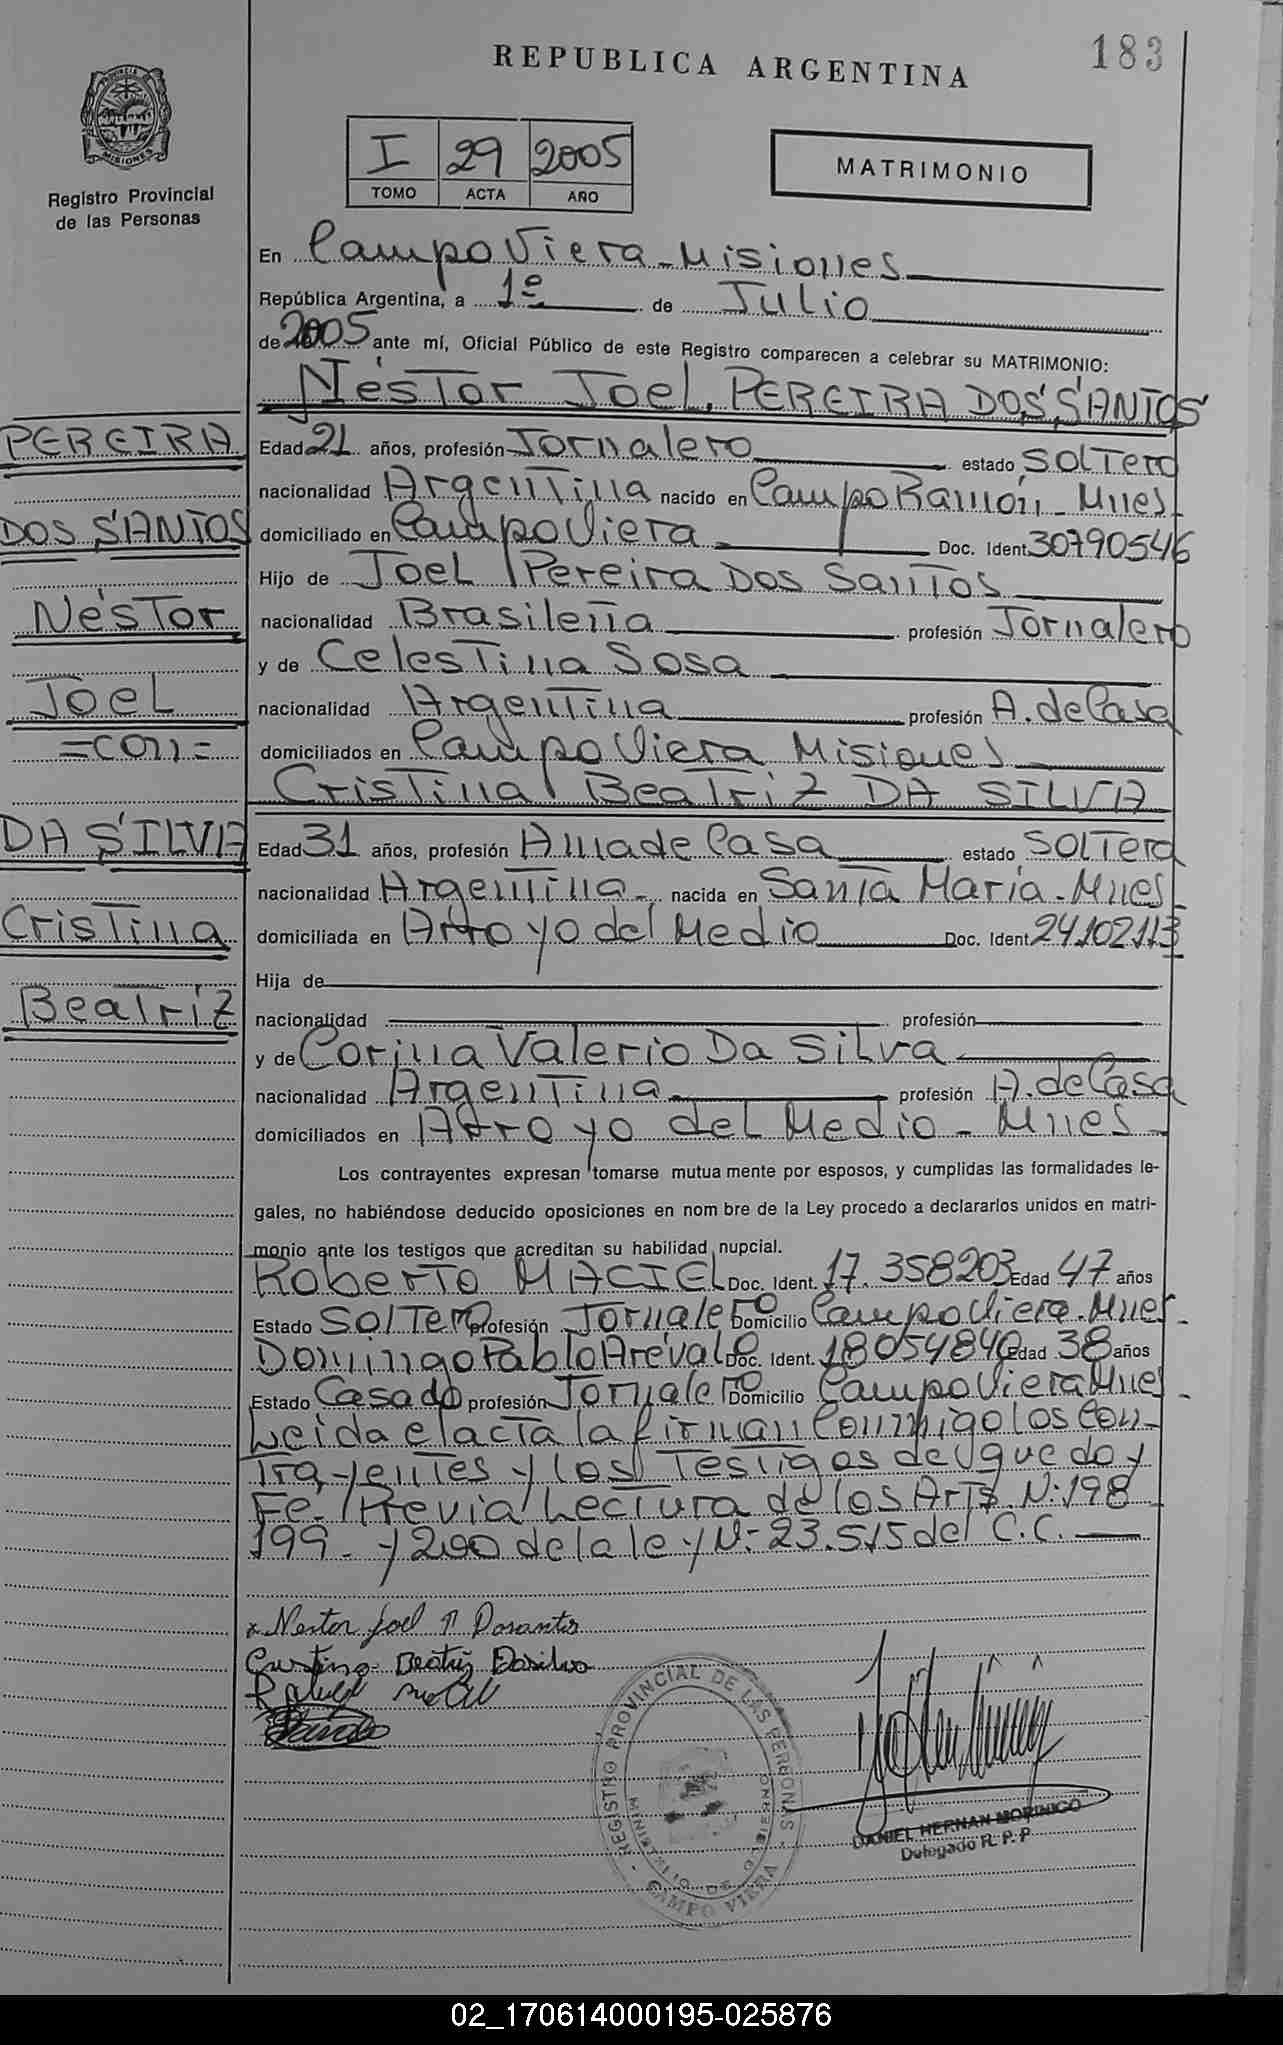 183
REPUBLICA ARGENTINA
PROVINCIA DE
MISIONES
Registro Provincial
de las Personas
I 29 2005
TOMO ACTA AÑO
MATRIMONIO
En Campo Viera - Misiones
República Argentina, a 1º de Julio
de 2005 ante mí, Oficial Público de este Registro comparecen a celebrar su MATRIMONIO:
Néstor Joel PEREIRA DOS SANTOS
PEREIRA
DOS SANTOS
Néstor
Joel
=con=
DA SILVA
Cristina
Beatriz
Edad 21 años, profesión Jornalero estado Soltero
nacionalidad Argentina nacido en Campo Ramón - Mnes
domiciliado en Campo Viera Doc. Ident. 30790546
Hijo de Joel Pereira Dos Santos
nacionalidad Brasileña profesión Jornalero
y de Celestina Sosa
nacionalidad Argentina profesión A. de Casa
domiciliados en Campo Viera Misiones
Cristina Beatriz DA SILVA
Edad 31 años, profesión Ama de Casa estado Soltera
nacionalidad Argentina nacida en Santa María - Mnes
domiciliada en Arroyo del Medio Doc. Ident. 24102113
Hija de
nacionalidad profesión
y de Corina Valerio Da Silva
nacionalidad Argentina profesión A. de Casa
domiciliados en Arroyo del Medio - Mnes -
Los contrayentes expresan tomarse mutua mente por esposos, y cumplidas las formalidades le-
gales, no habiéndose deducido oposiciones en nom bre de la Ley procedo a declararlos unidos en matri-
monio ante los testigos que acreditan su habilidad nupcial.
Roberto MACIEL Doc. Ident. 17.358203 Edad 47 años
Estado Soltero profesión Jornalero Domicilio Campo Viera - Mnes -
Domingo Pablo Arévalo Doc. Ident. 18054840 Edad 38 años
Estado Casado profesión Jornalero Domicilio Campo Viera Mnes -
Leida el acta la firman conmigo los Con-
trayentes y los Testigos de que doy
Fe. Previa Lectura de los Arts N: 198
199 - y 200 de la ley N: 23.515 del C.C.
x Nestor Joel P Dosantos
Cristina Beatriz Dasilva
- REGISTRO PROVINCIAL DE LAS PERSONAS -
MINISTERIO DE GOBIERNO
CAMPO VIERA
DANIEL HERNAN MORINIGO
Delegado R. P. P.
02_170614000195-025876